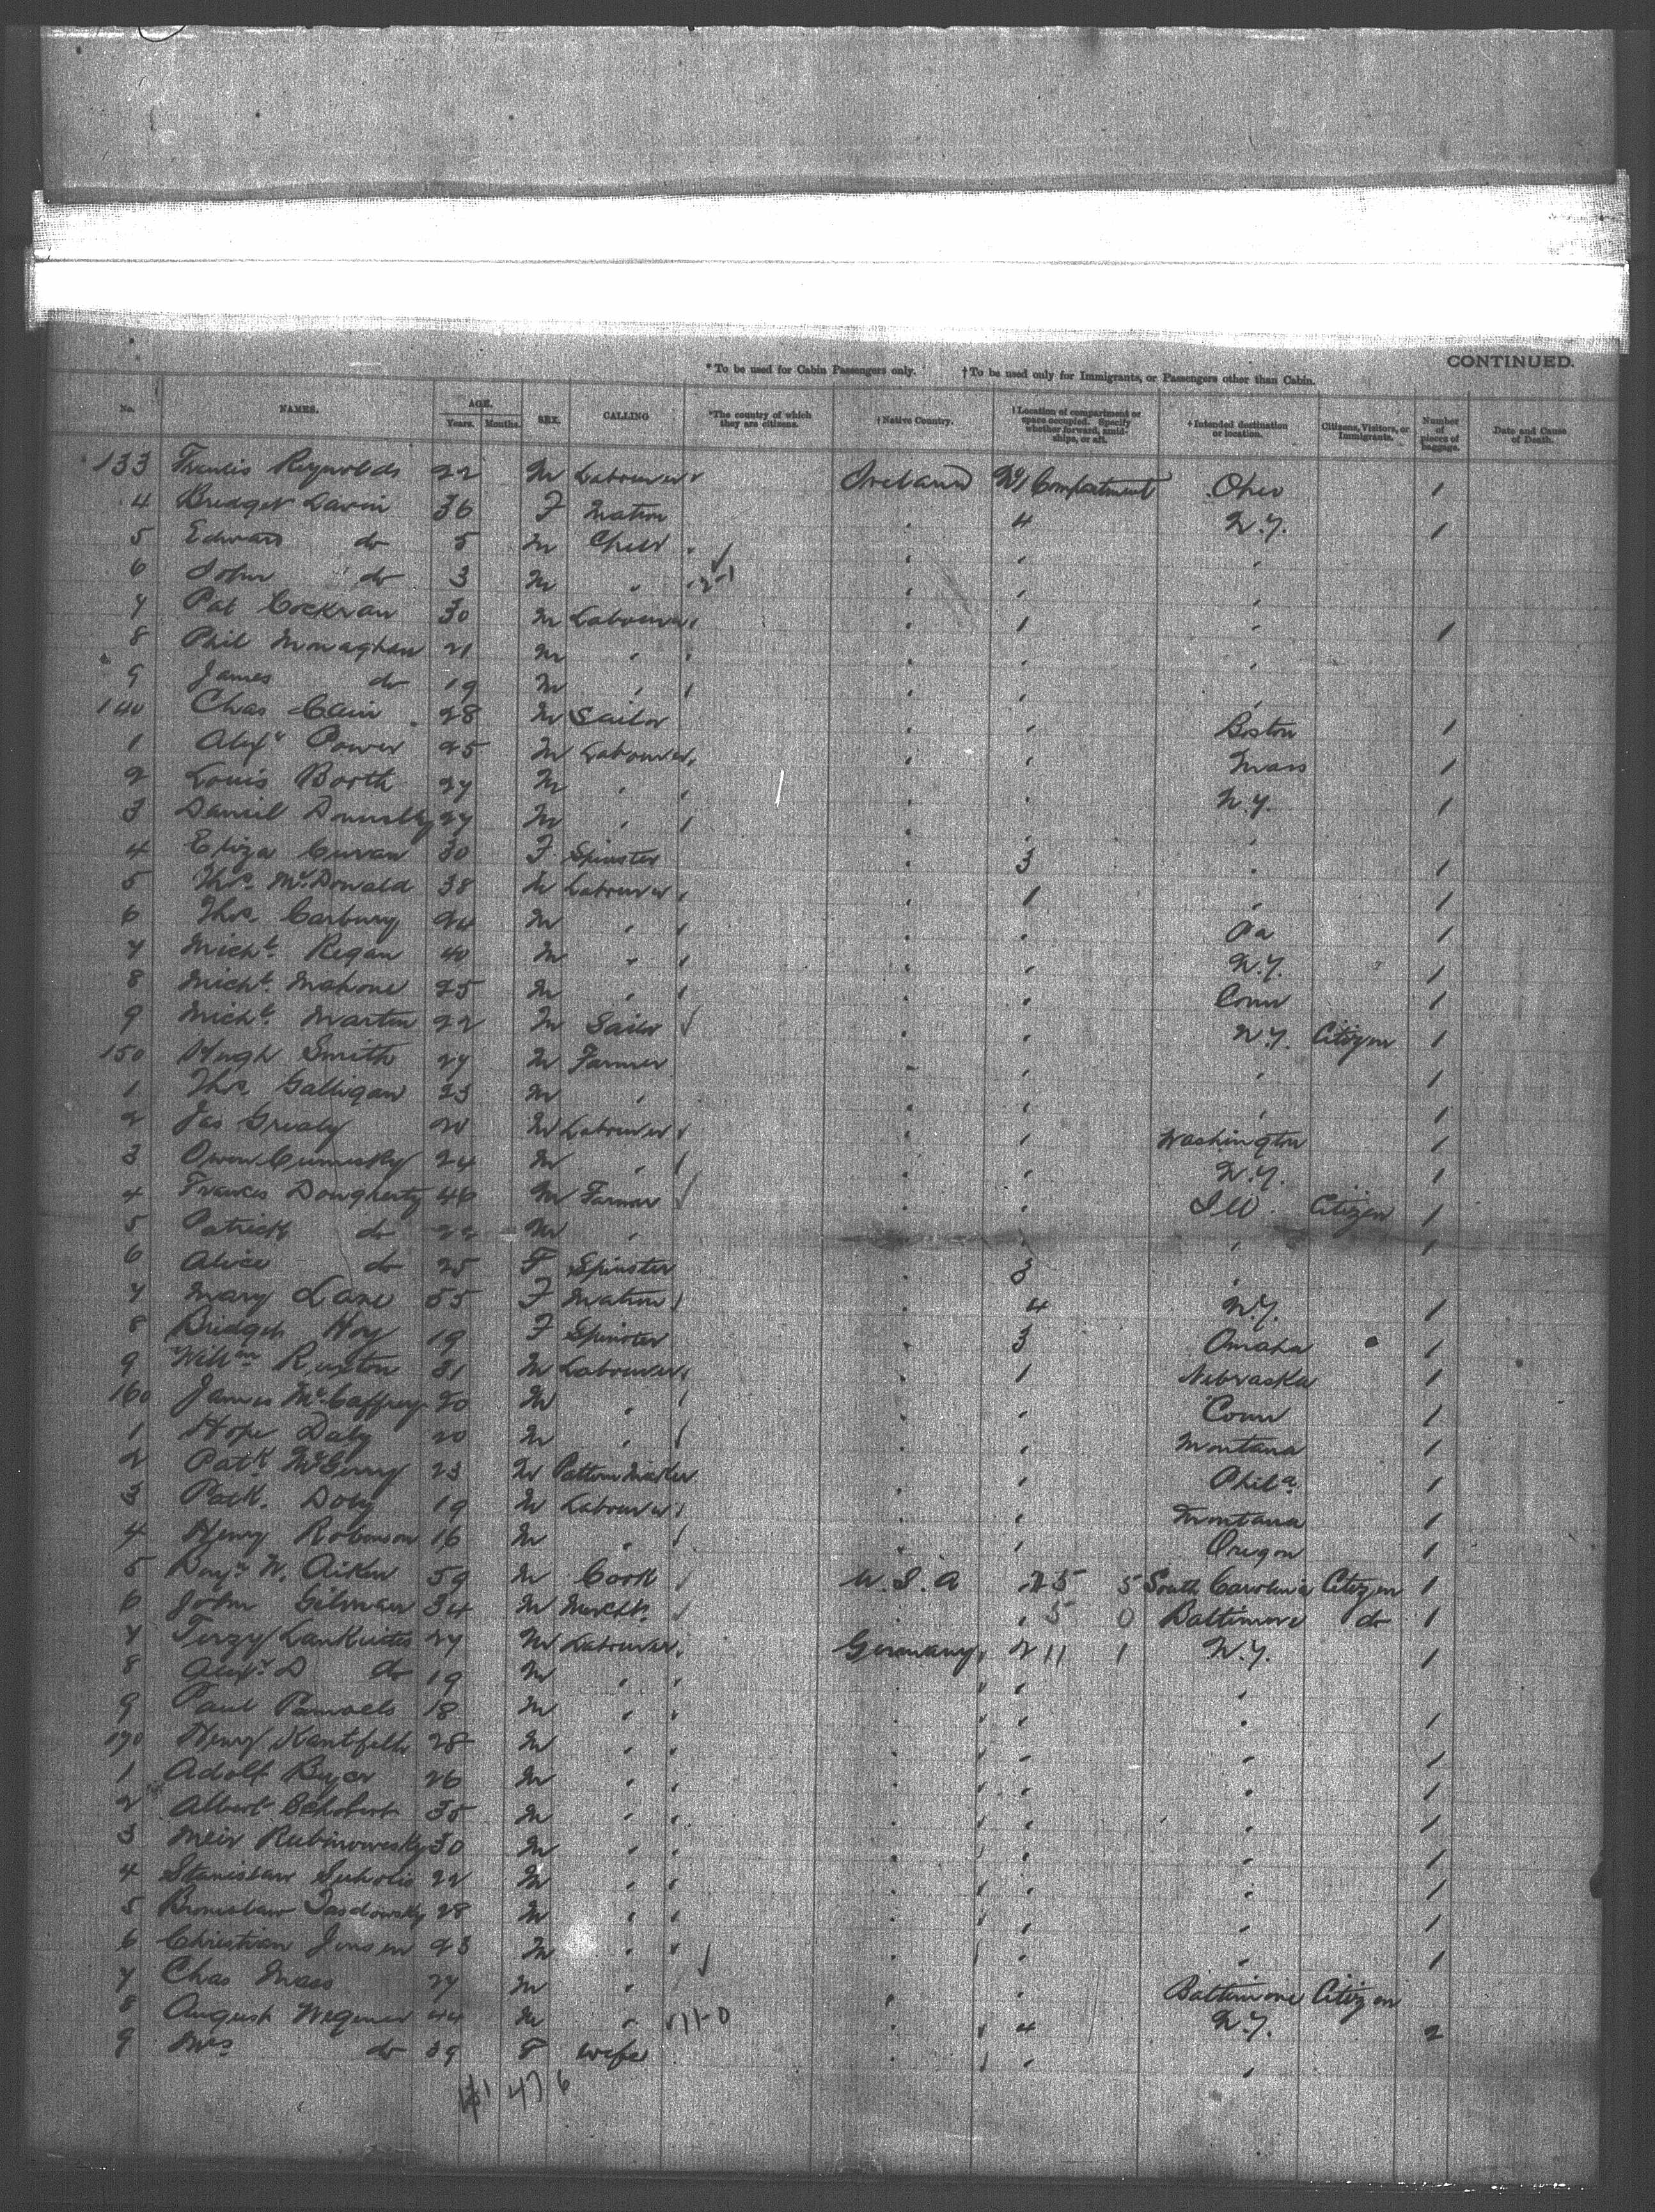 CONTINUED.
* To be used for Cabin Passengers only. † To be used only for Immigrants, or Passengers other than Cabin.
No. NAMES. AGE. Years. Months. SEX. CALLING *The country of which they are citizens. †Native Country. †Location of compartment or space occupied. Specify whether forward, amidships, or aft. †Intended destination or location. Citizens, Visitors, or Immigrants. Number of pieces of baggage. Date and Cause of Death.
133 Francis Reynolds 22 M Labourer Ireland No 1 Compartment Ohio 1
4 Bridget Davin 36 F Matron " 4 N.Y. 1
5 Edward do 5 M Child " " "
6 John do 3 M " " " "
7 Pat Cockran 30 M Labourer " 1 " 1
8 Phil Monaghan 21 M " " " "
9 James do 19 M " " " "
140 Chas Cain 28 M Sailor " " Boston 1
1 Alexr Power 25 M Labourer " " Mass 1
2 Louis Borth 27 M " " " N.Y. 1
3 Daniel 27 M " " " "
4 Eliza Curran 30 F Spinster " 3 " 1
5 Thos McDonald 38 M Labourer " 1 " 1
6 Thos Carbury 24 M " " " Pa 1
7 Michl Regan 40 M " " " N.Y. 1
8 Michl Mahone 25 M " " " Conn 1
9 Michl Martin 22 M Sailor " " N.Y. Citizen 1
150 Hugh Smith 27 M Farmer " " " 1
1 Thos Galligan 23 M " " " " 1
2 Jas Grealy 20 M Labourer " " Washington 1
3 Owen Cumisky 24 M " " " N.Y. 1
4 Frances Dougherty 46 M Farmer " " Ill. Citizen 1
5 Patrick do 22 M " " " " 1
6 Alice do 25 F Spinster " 3 "
7 Mary Lane 55 F Matron " 4 N.Y. 1
8 Bridget Hoy 19 F Spinster " 3 Omaha 1
9 Willm Ruxton 31 M Labourer " 1 Nebraska 1
160 James McCaffrey 20 M " " " Conn 1
1 Hope Daly 20 M " " " Montana 1
2 Patk McGerry 23 M Pattern Maker " " Phila 1
3 Patk. Doly 19 M Labourer " " Montana 1
4 Henry Robinson 16 M " " " Oregon 1
5 W. Aiken 59 M Cook U.S.A 25 5 South Carolina Citizen 1
6 John Gilman 34 M Mercht. " 5 0 Baltimore do 1
7 27 M Labourer Germany 2 11 1 N.Y. 1
8 Alexr D do 19 M " " " "
9 Paul 18 M " " " " 1
170 Henry 28 M " " " " 1
1 Adolf Beyer 26 M " " " " 1
2 Albert Schobert 35 M " " " " 1
3 Meir Rubinowesky 30 M " " " " 1
4 Stanislaw 22 M " " " " 1
5 Bronislaw 28 M " " " " 1
6 Christian Jensen 23 M " " " " 1
7 Chas Mass 27 M " " " Baltimore Citizen
8 August Wegener 44 M " 11-0 " 4 N.Y. 2
9 Mrs do 39 F wife " " "
41 47 6